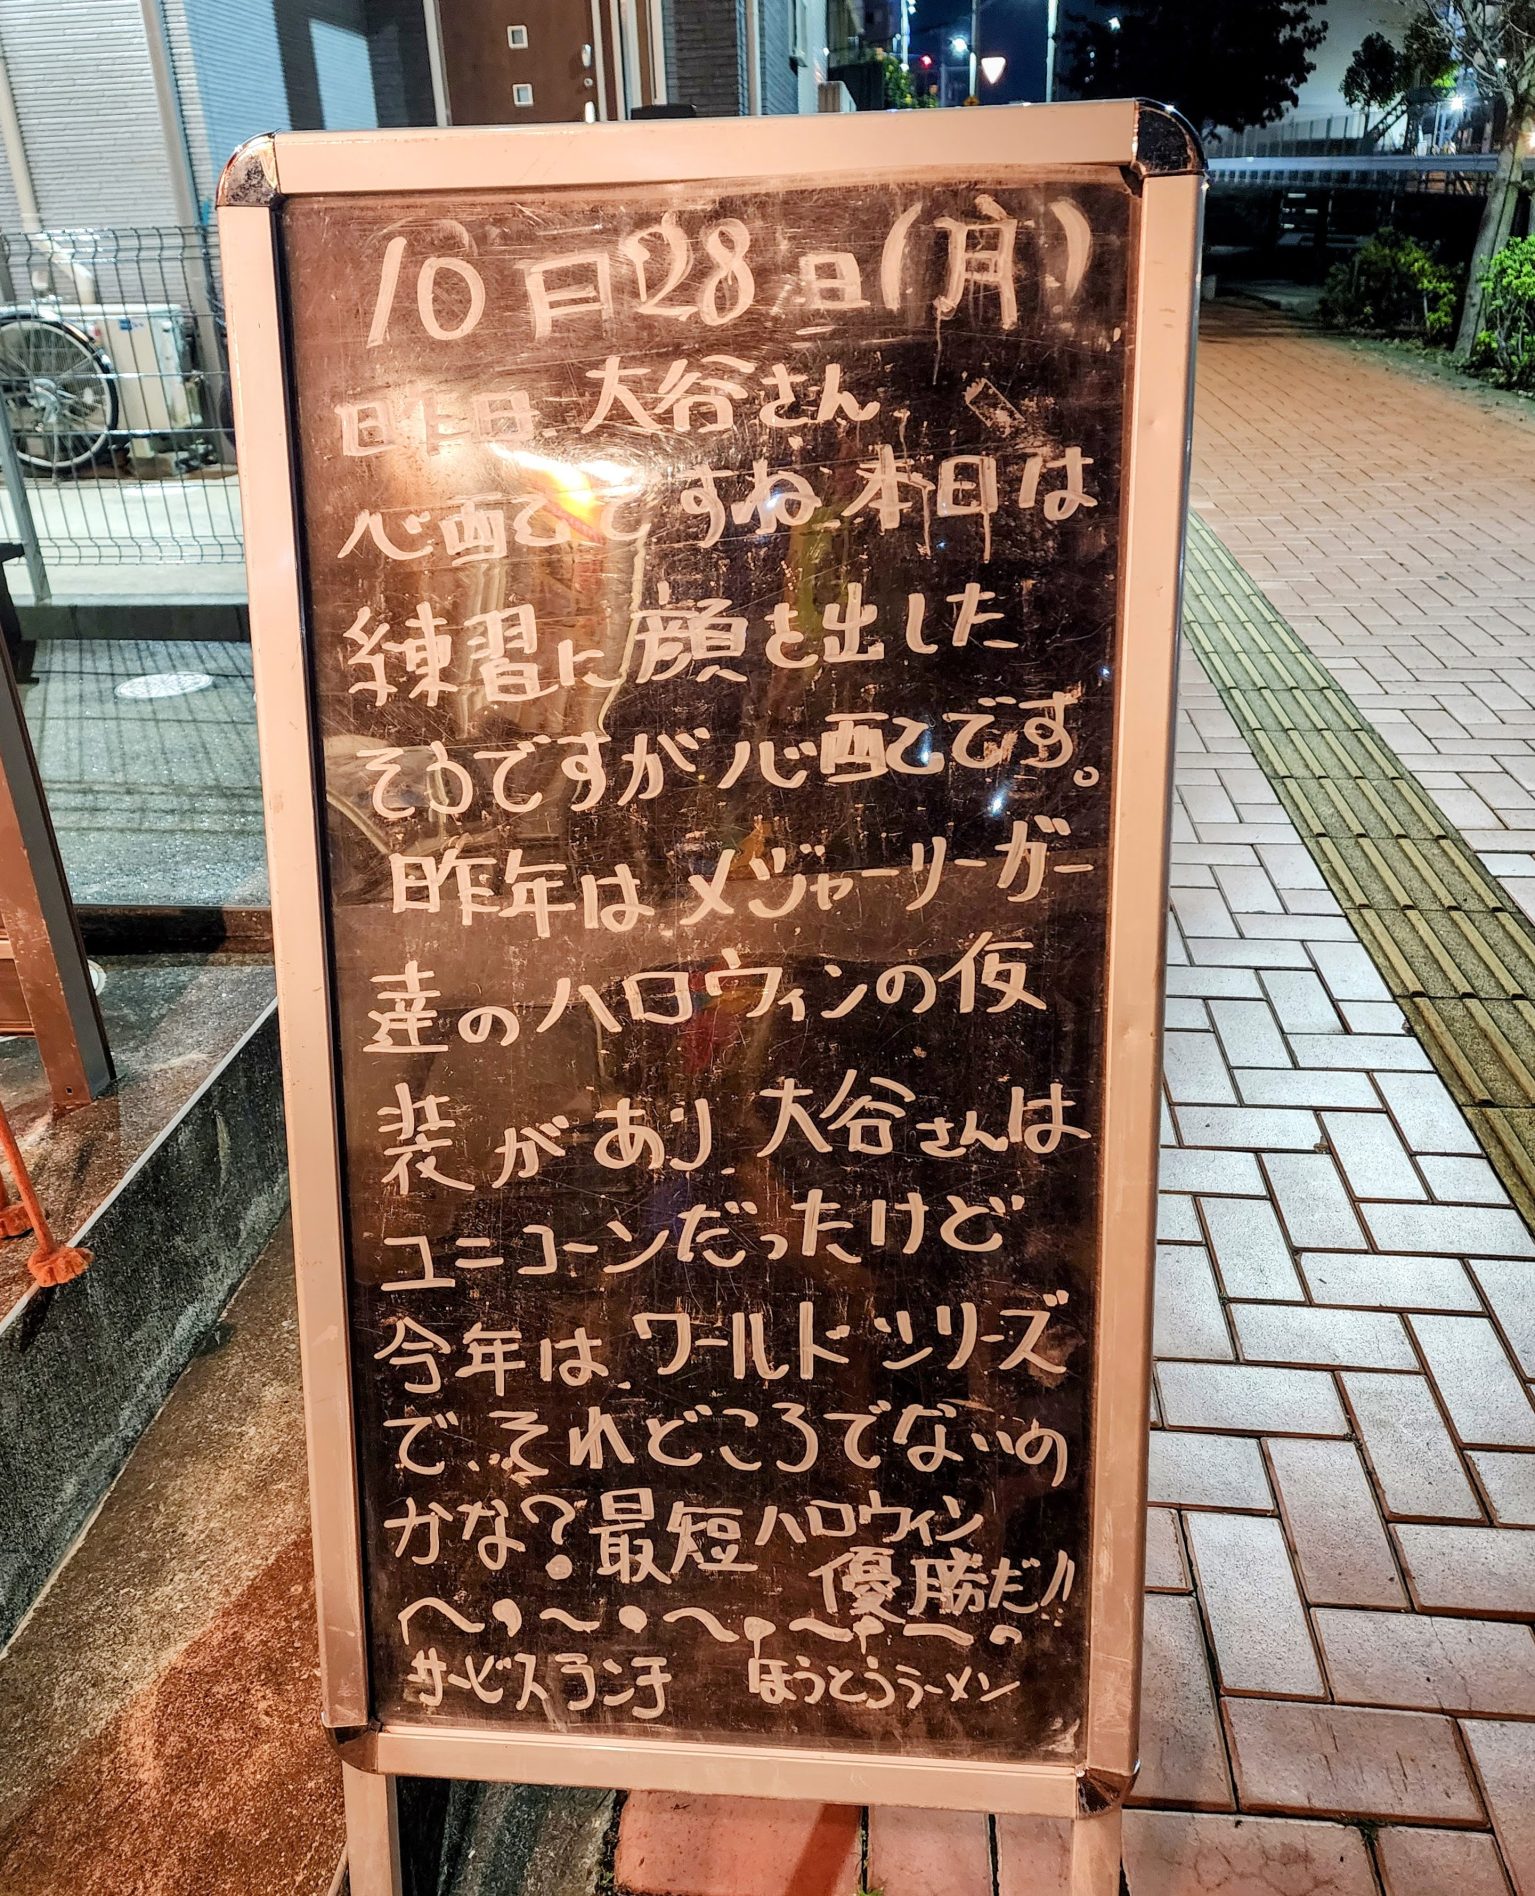 10月28日(月)
昨日、大谷さん
心配ですね、本日は
練習に顔を出した
そうですが心配です。
昨年はメジャーリーガー
達のハロウィンの仮
装があり、大谷さんは
ユニコーンだったけど
今年は、ワールドシリーズ
で、それどころでないの
かな?最短ハロウィン
優勝だ!!
サービスランチ ほうとうラーメン